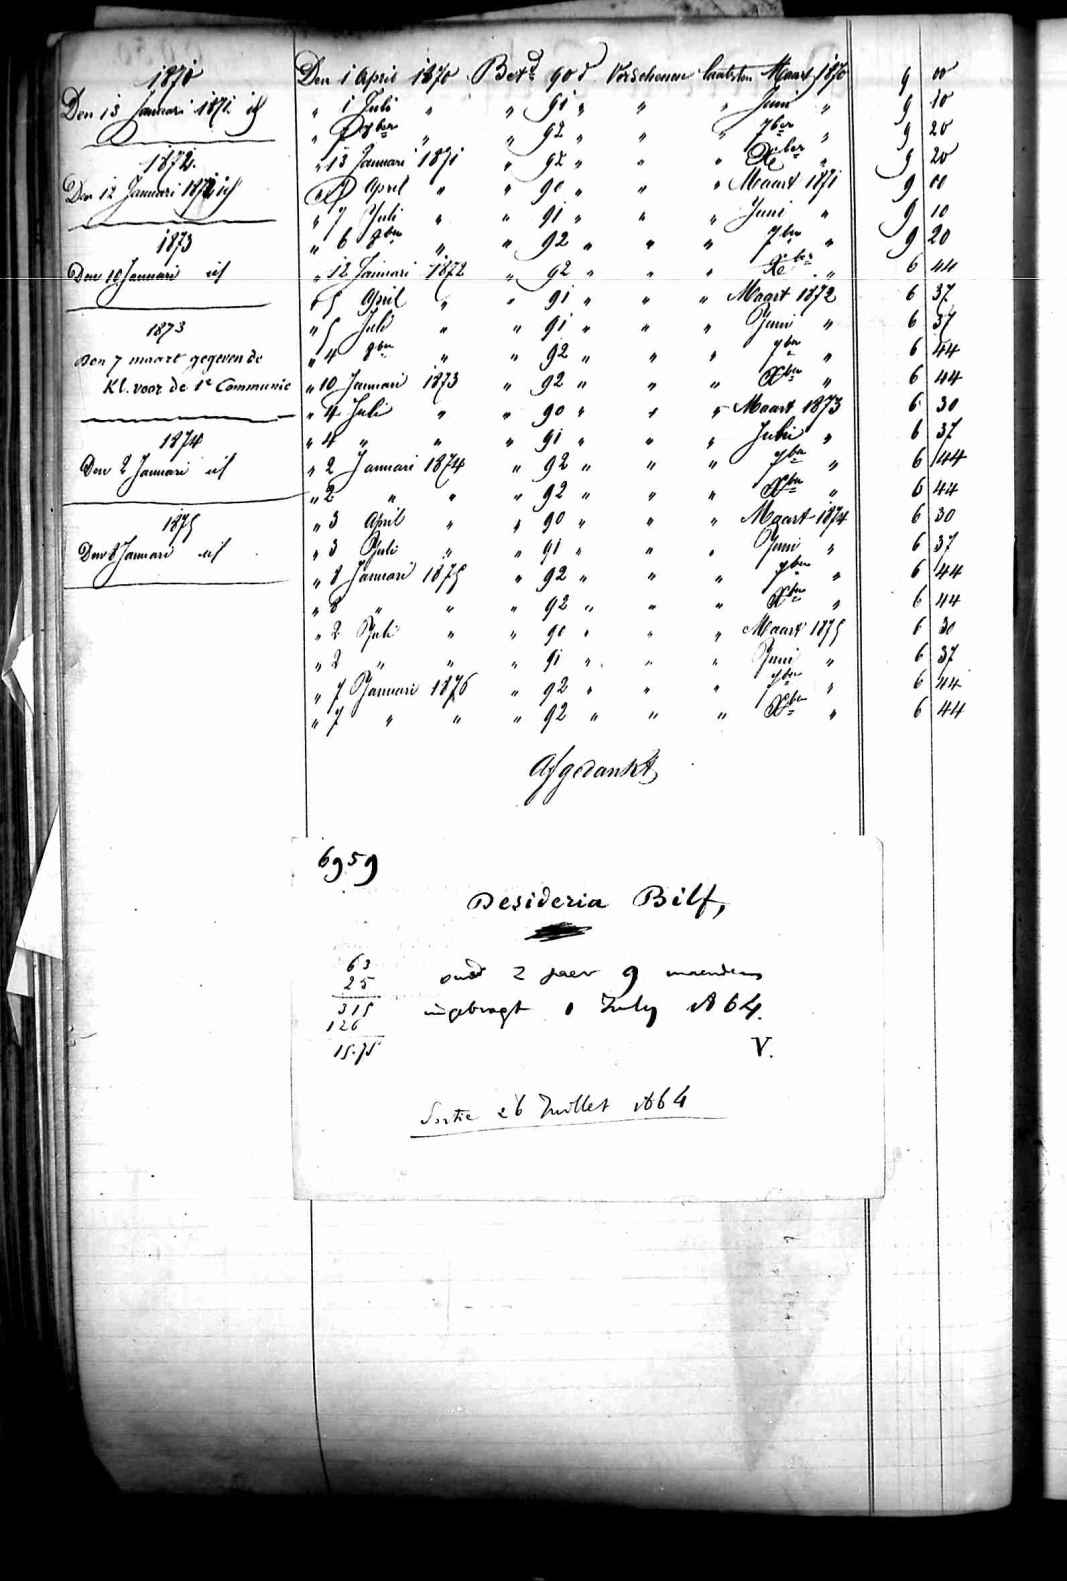 1870
Den 13 Januari 1871 id
1872.
Den 12 Januari 1872 id
1873
Den 10 Januari id
1873
Den 7 maart gegeven de
Kl. voor de 1e Communie
1874
Den 2 Januari id
1875
Den 8 Januari id
Den 1 April 1870 Betd 90 d Verschenen laatsten Maart 1870 9 00
" 1 Juli " " 91 " " " Juni " 9 10
" 7 8ber " " 92 " " " 7ber " 9 20
" 13 Januari 1871 " 92 " " " Xber " 9 20
" April " " 90 " " " Maart 1871 9 00
" 7 Juli " " 91 " " " Juni " 9 10
" 6 8ber " " 92 " " " 7ber " 9 20
" 12 Januari 1872 " 92 " " " Xber " 6 44
" 5 April " " 91 " " " Maart 1872 6 37
" 5 Juli " " 91 " " " Juni " 6 37
" 4 8ber " " 92 " " " 7ber " 6 44
" 10 Januari 1873 " 92 " " " Xber " 6 44
" 4 Juli " " 90 " " " Maart 1873 6 30
" 4 " " " 91 " " " Juni " 6 37
" 2 Januari 1874 " 92 " " " 7ber " 6 44
" 2 " " " 92 " " " Xber " 6 44
" 3 April " " 90 " " " Maart 1874 6 30
" 3 Juli " " 91 " " " Juni " 6 37
" 8 Januari 1875 " 92 " " " 7ber " 6 44
" 8 " " " 92 " " " Xber " 6 44
" 2 Juli " " 90 " " " Maart 1875 6 30
" 2 " " " 91 " " " Juni " 6 37
" 7 Januari 1876 " 92 " " " 7ber " 6 44
" 7 " " " 92 " " " Xber " 6 44
Afgedankt
6959
Desideria Bilf,
63
25
315
126
15.75
oud 2 jaer 9 maenden
ingebragt 1 July 1864.
V.
Sortie 26 Juillet 1864